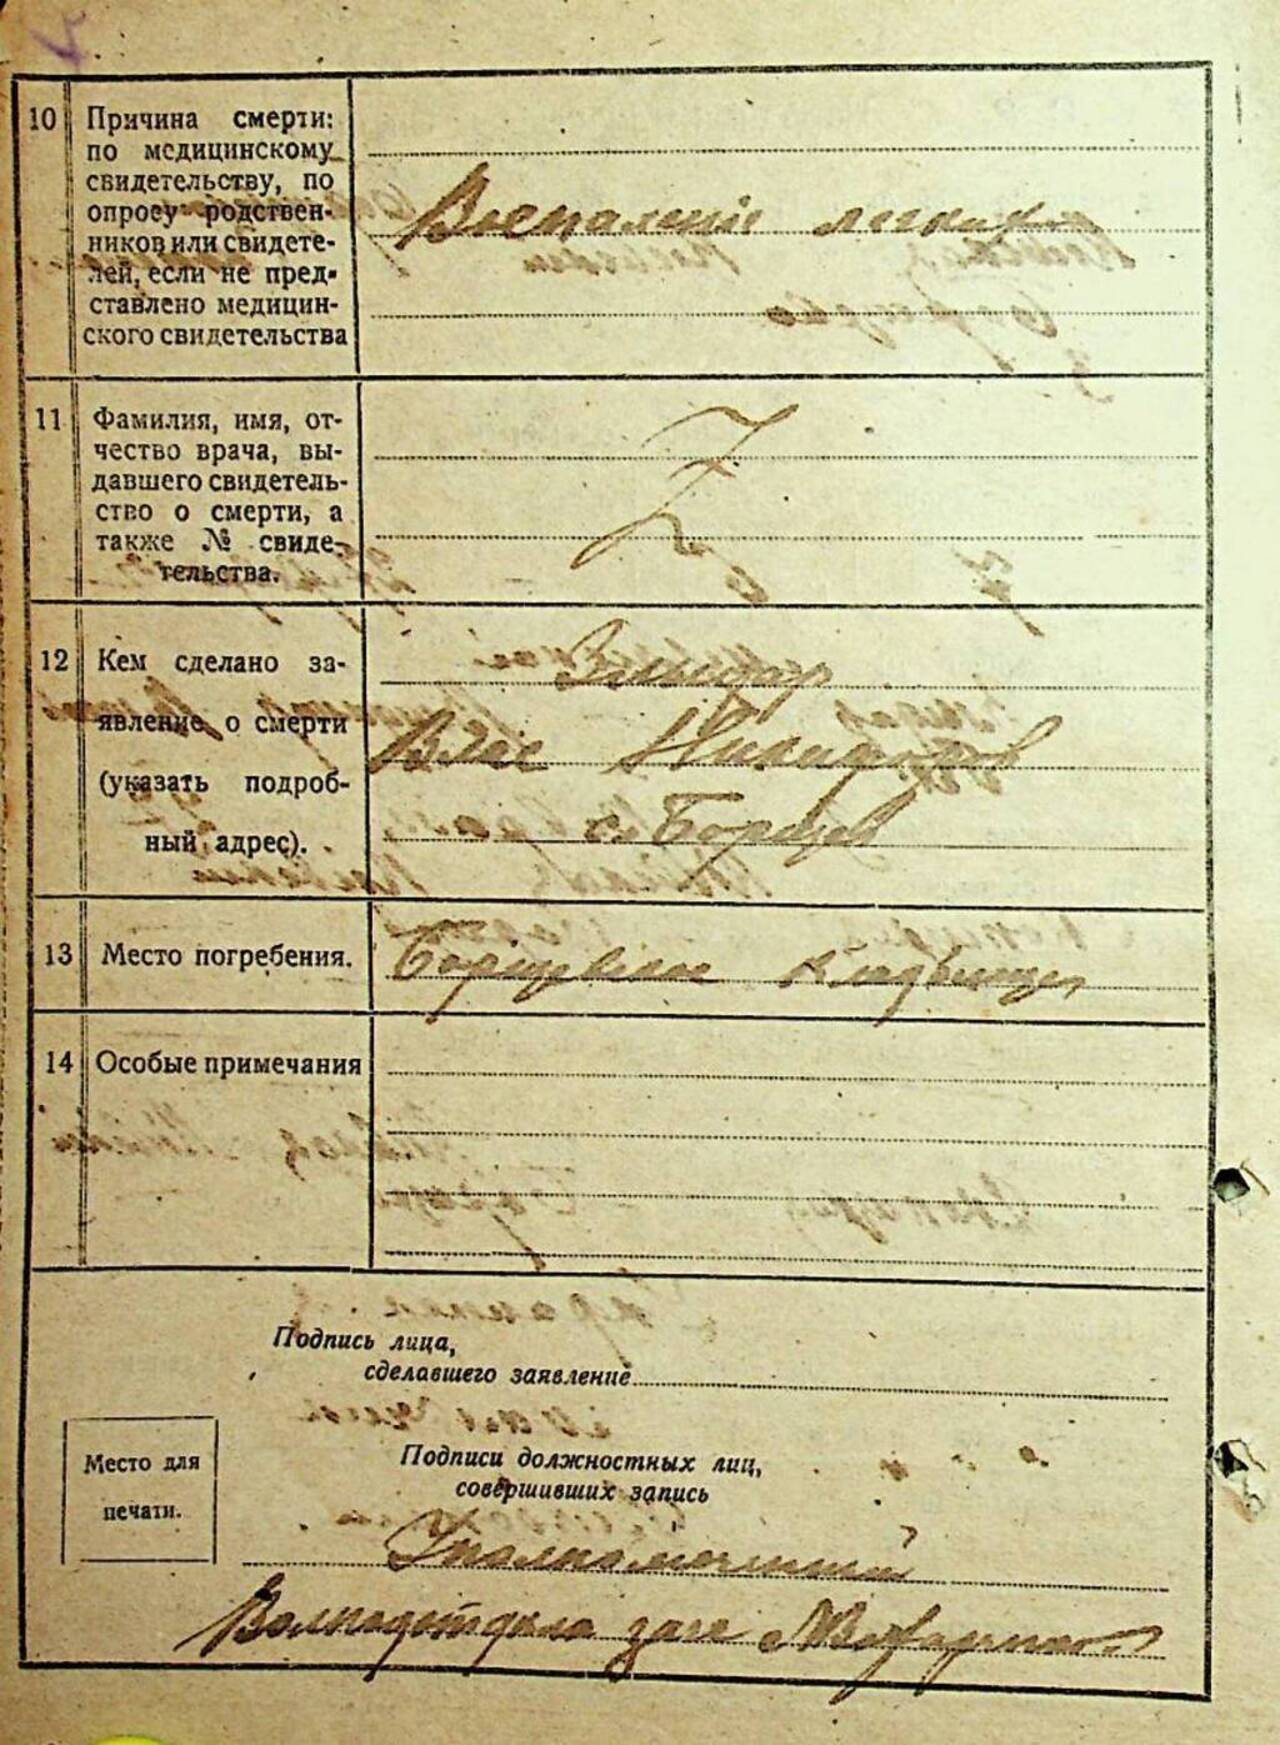 10 Причина смерти:
по медицинскому
свидетельству, по
опросу родствен-
ников или свидете-
лей, если не пред-
ставлено медицин-
ского свидетельства
Воспаление легких
11 Фамилия, имя, от-
чество врача, вы-
давшего свидетель-
ство о смерти, а
также № свиде-
тельства.
12 Кем сделано за-
явление о смерти
(указать подроб-
ный адрес).
Влас Никифоров
с. Борщев
13 Место погребения.
Борщевское кладбище
14 Особые примечания
Подпись лица,
сделавшего заявление
Место для
печати.
Подписи должностных лиц,
совершивших запись
Уполномоченный